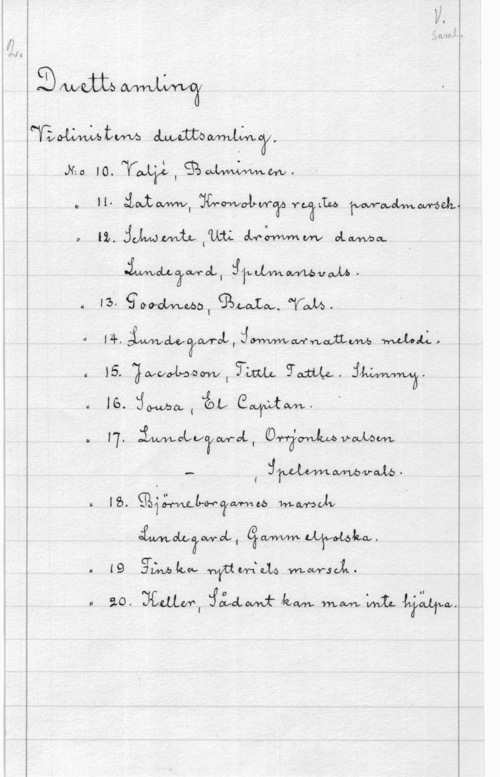 V.
Saml.
2.
Duettsamling
Violinistens duettsamling.
N:o 10. Valjé, Balminnen.
" 11. Latann, Kronobergs reg:tes paradmarsch.
" 12. Schwente, Uti drömmen dansa
Lundegard, Spelmansvals.
" 13. Goodness, Beata. Vals.
" 14. Lundegard, Sommarnattens melodi.
" 15. Jacobsson, Tittle Tattle. Shimmy.
" 16. Sousa, El Capitan.
" 17. Lundegard, Orrjonkesvalsen
– , Spelemansvals.
" 18. Björneborgarnes marsch
Lundegard, Gammelpolska.
" 19 Finska rytteriets marsch.
" 20. Keller, Sådant kan man inte hjälpa.